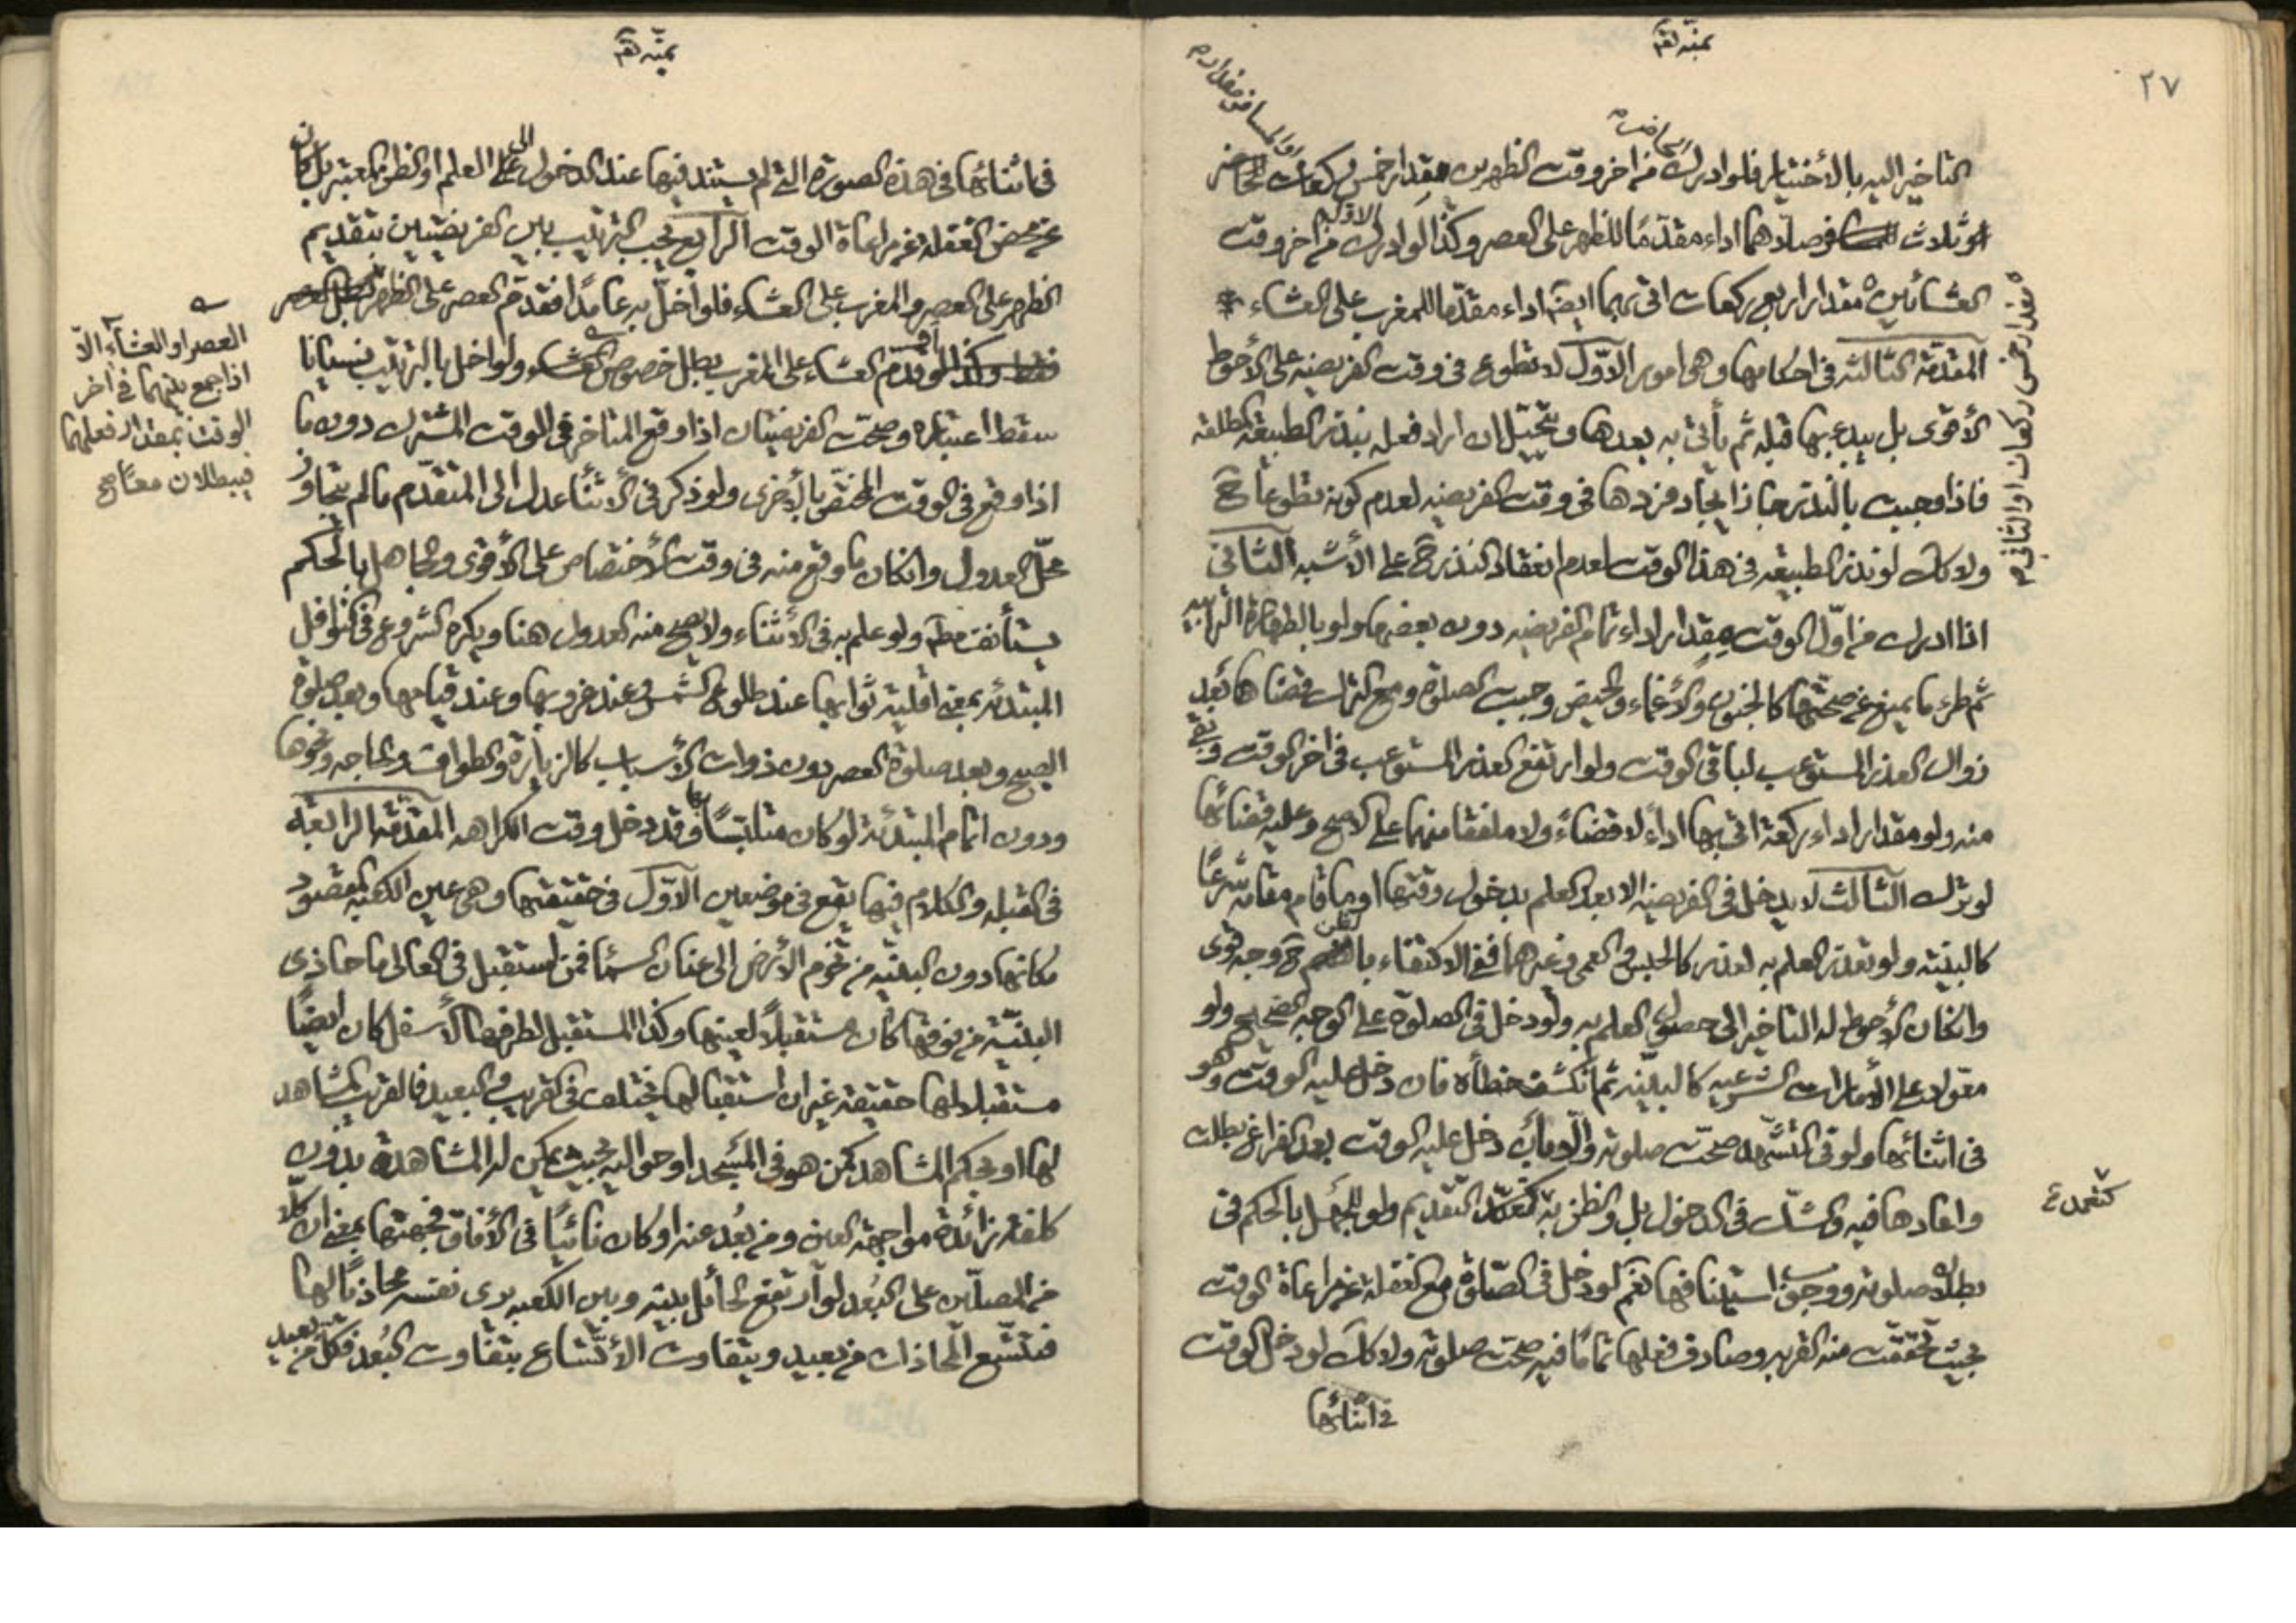 ٢٧
التاخير اليه بالأختيار فلو ادرك من اخر وقت الظهرين مقدار خمس ركعات
او ثلاث فصلاهما اداء مقدّمًا للظهر على العصر وكذا لو ادرك الاوّل من اخر وقت
العشائين مقدار اربع ركعات اتى بهما ايضًا اداء مقدّما للمغرب على العشاء
مقدار خمس ركعات او الثاني
المقدّمة الثالثه في احكامها وهى امور الاوّل لا تطوع فى وقت الفريضه على الأحوط
الأقوى بل يبدء بها قبله ثم يأتى به بعدها ويتخيّل ان اراد فعله بنذر الطبيعة المطلقه
فاذا وجبت بالنذر جاز ايجاد فردها فى وقت الفريضه لعدم كونه تطوعًا ح
ولا كك لو نذر الطبيعه فى هذا الوقت لعدم انعقاد النذر ح على الأشبه الثانى
اذا ادرك من اوّل الوقت مقدار اداء تمام الفريضه دون بعضها ولو بالطهارة الترابيه
ثم طرء ما يمنع عن صحّتها كالجنون والأغماء والحيض وجبت الصلوة ومع الترك قضاها بعد
زوال العذر المستوعب لباقى الوقت ولو ارتفع العذر المستوعب فى اخر الوقت وبقى
منه ولو مقدار اداء ركعة اتى بها اداءً لا قضاءً ولا ملفقا منهما على الاصح وعليه قضائها
لو ترك الثالث لا يدخل فى الفريضه الا بعد العلم بدخول وقتها او ما قام مقامه شرعًا
كالبينه ولو تعذر العلم به لعذر كالحبس فى العمى وغيرهما ففى الاكتفاء بالظن ح وجه قوى
وانكان الأحوط له التاخير الى حصول العلم به ولو دخل فى الصلوة على الوجه الصحيح ولو
معولا على الأمارات الشرعيه كالبينه ثم انكشف خطأه فان دخل عليه الوقت وهو
فى اثنائها ولو فى التشهد صحّت صلوته والّا بأن دخل عليه الوقت بعد الفراغ بطلت
واعادها فيه والشك فى الدخول بل والظن به كتعمّد التقديم ولو للجهل بالحكم فى
كتعمد
بطلان صلوته ووجوب استينافها نعم لو دخل فى الصّلوة مع الغفلة عن مراعاة الوقت
بحيث تحققت منه القربه وصادف فعلها تمامًا فيه صحت صلوته ولا كك لو دخل الوقت
فى اثنائها
فى اثنائها فى هذه الصورة التى لم يستند فيها عند الدخول الى العلم او الظن المعتبر بل كان
عن محض الغفله عن مراعاة الوقت الرابع يجب الترتيب بين الفريضتين بتقديم
الظهر على العصر والمغرب على العشاء فلو اخلّ به عامدًا فقدّم العصر على الظهر
العشاء على المغرب بطل خصوص ولو اخل بالترتيب نسيانا
العصر او العشاء الّا
اذا جمع بينهما فى اخر
الوقت بمقدار فعلهما
فيبطلان معًا صح
سقط اعتباره وصحّت الفريضتان اذا وقع المتاخر فى الوقت المشترك دون ما
اذا وقع فى الوقت المختصّ بالأخرى ولو ذكر فى الأثناء عدل الى المتقدّم ما لم يتجاوز
محلّ العدول وانكان ما وقع منه فى وقت الأختصاص على الأقوى والجاهل بالحكم
يستأنف مط ولو علم به فى الأثناء ولا يصح منه العدول هنا ويكره الشروع فى النوافل
المبتدئه بمعنى اقلية ثوابها عند طلوع الشمس وعند غروبها وعند قيامها وبعد صلوة
الصبح وبعد صلوة العصر دون ذوات الأسباب كالزيارة والطواف والحاجه ونحوها
ودون اتمام المبتدئة لو كان متلبّسًا بها وقد دخل وقت الكراهه المقدّمة الرابعة
فى القبله والكلام فيها يقع فى موضعين الاوّل فى حقيقتها وهى عين الكعبه المقصود
مكانها دون البنيّه من تخوم الأرض الى عنان السماء فمن استقبل فى العالى ما حاذى
البنيّة من فوقها كان مستقبلًا لعينها وكذا المستقبل لطرفها الأسفل كان ايضًا
مستقبلا لها حقيقة غير ان استقبالها يختلف فى القريب والبعيد فالقريب المشاهد
لها او بحكم المشاهد كمن هو فى المسجد او حواليه بحيث يمكن له المشاهدة بدون
كلفة زائدة مواجهة العين ومن بعُد عنه او كان نائيًا فى الأفاق فجهتها بمعنى ان كلّا
من المصلّين على البُعد لو ارتفع الحائل بينه وبين الكعبه يرى نفسه محاذيًا لها
فتتسّع المحاذات من بعيد ويتفاوت الأتّساع بتفاوت البُعد فكل من بعيد